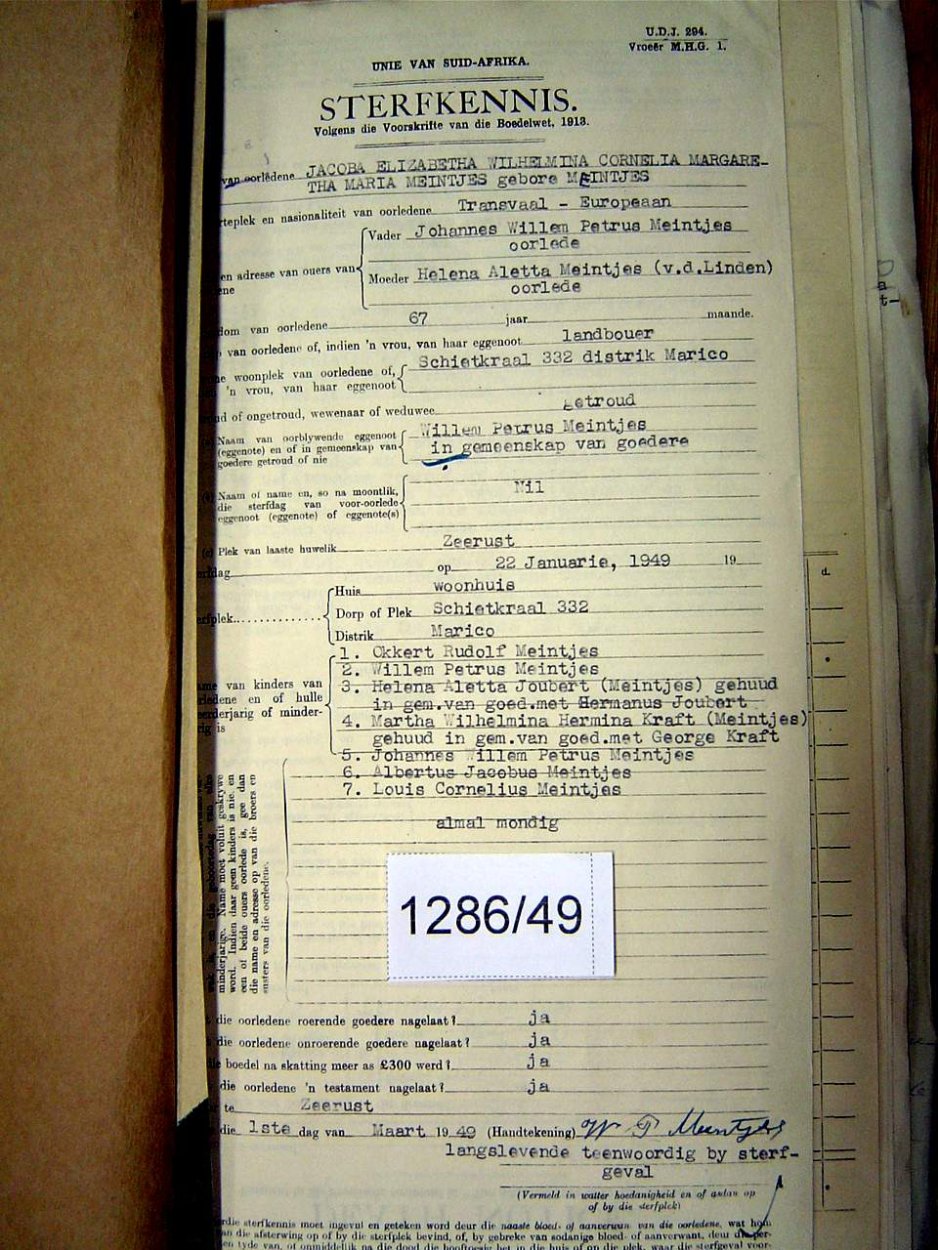 U.D.J. 294.
Vroeër M.H.G. 1.
UNIE VAN SUID-AFRIKA.
STERFKENNIS.
Volgens die Voorskrifte van die Boedelwet, 1913.
van oorledene JACOBA ELIZABETHA WILHELMINA CORNELIA MARGARE-
THA MARIA MEINTJES gebore MEINTJES
rteplek en nasionaliteit van oorledene Transvaal - Europeaan
Vader Johannes Willem Petrus Meintjes
oorlede
en adresse van ouers van
ne
Moeder Helena Aletta Meintjes (v.d.Linden)
oorlede
dom van oorledene 67 jaar maande.
van oorledene of, indien 'n vrou, van haar eggenoot landbouer
ne woonplek van oorledene of, Schietkraal 332 distrik Marico
'n vrou, van haar eggenoot
ud of ongetroud, wewenaar of weduwee getroud
Naam van oorblywende eggenoot Willem Petrus Meintjes
(eggenote) en of in gemeenskap van in gemeenskap van goedere
goedere getroud of nie
Naam of name en, so na moontlik, Nil
die sterfdag van voor-oorlede
eggenoot (eggenote) of eggenote(s)
(c) Plek van laaste huwelik Zeerust
rfdag op 22 Januarie, 1949 19
Huis woonhuis
erfplek Dorp of Plek Schietkraal 332
Distrik Marico
1. Okkert Rudolf Meintjes
2. Willem Petrus Meintjes
ame van kinders van 3. Helena Aletta Joubert (Meintjes) gehuud
rledene en of hulle in gem.van goed.met Hermanus Joubert
eerderjarig of minder- 4. Martha Wilhelmina Hermina Kraft (Meintjes)
rig is gehuud in gem.van goed.met George Kraft
5. Johannes Willem Petrus Meintjes
6. Albertus Jacobus Meintjes
7. Louis Cornelius Meintjes
almal mondig
minderjarige. Name moet voluit geskrywe
word. Indien daar geen kinders is nie, en
een of beide ouers oorlede is, gee dan
die name en adresse op van die broers en
susters van die oorledene.
1286/49
die oorledene roerende goedere nagelaat? ja
die oorledene onroerende goedere nagelaat? ja
boedel na skatting meer as £300 werd? ja
die oorledene 'n testament nagelaat? ja
te Zeerust
die 1ste dag van Maart 19 49 (Handtekening) W P Meintjes
langslewende teenwoordig by sterf-
geval
(Vermeld in watter hoedanigheid en of aldan op
of by die sterfplek)
rdie sterfkennis moet ingevul en geteken word deur die naaste bloed- of aanverwan van die oorledene, wat hom
an die afsterwing op of by die sterfplek bevind, of, by gebreke van sodanige bloed- of aanverwant, deur die per-
en tyde van, of onmiddellik na die dood die hooftoesig het in die huis of op die plek, waar die sterfgeval voor-
d.